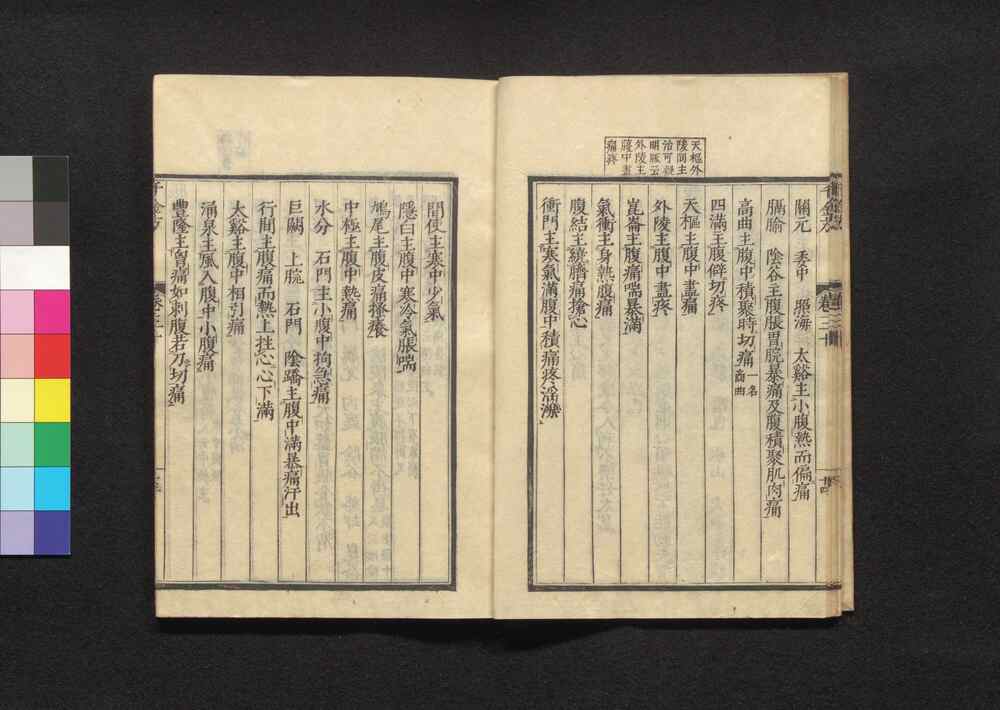 天樞外
陵同主
治可疑
明版云
外陵主
腹中盡
痛疼
關元　委中　照海　太谿主小腹熱而偏痛
膈腧　陰谷主腹脹胃脘暴痛及腹積聚肌肉痛
高曲主腹中積聚時切痛一名商曲
四滿主腹僻切疼
天樞主腹中盡痛
外陵主腹中盡疼
崑崙主腹痛喘暴滿
氣衝主身熱腹痛
腹結主繞臍痛搶心
衝門主寒氣滿腹中積痛疼淫濼
卷三十
間使主寒中少氣
隱白主腹中寒冷氣脹喘
鳩尾主腹皮痛搔癢
中極主腹中熱痛
水分　石門主小腹中拘急痛
巨闕　上脘　石門　陰蹻主腹中滿暴痛汗出
行間主腹痛而熱上柱心心下滿
太谿主腹中相引痛
涌泉主風入腹中小腹痛
豐隆主胷痛如刺腹若刀切痛